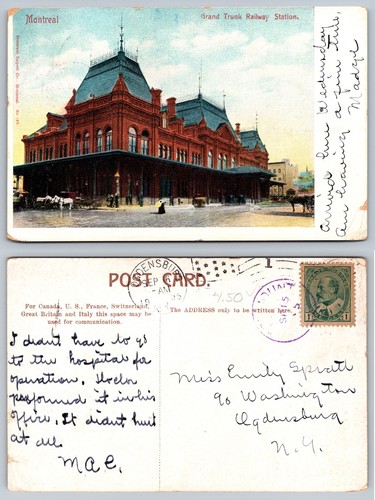 Montreal
Grand Trunk Railway Station.
arrived here Wednesday
Am having a fine time,
Madge
POST CARD.
For Canada, U. S., France, Switzerland,
Great Britain and Italy this space may be
used for communication.
The ADDRESS only to be written here.
OGDENSBURG
SEP
AM
4.50
1
I didn't have to go
to the hospital for
operation,
performed it in his
office. It didn't hurt
at all.
Mae.
Miss Emily Spratt
90 Washington
Ogdensburg
N. Y.